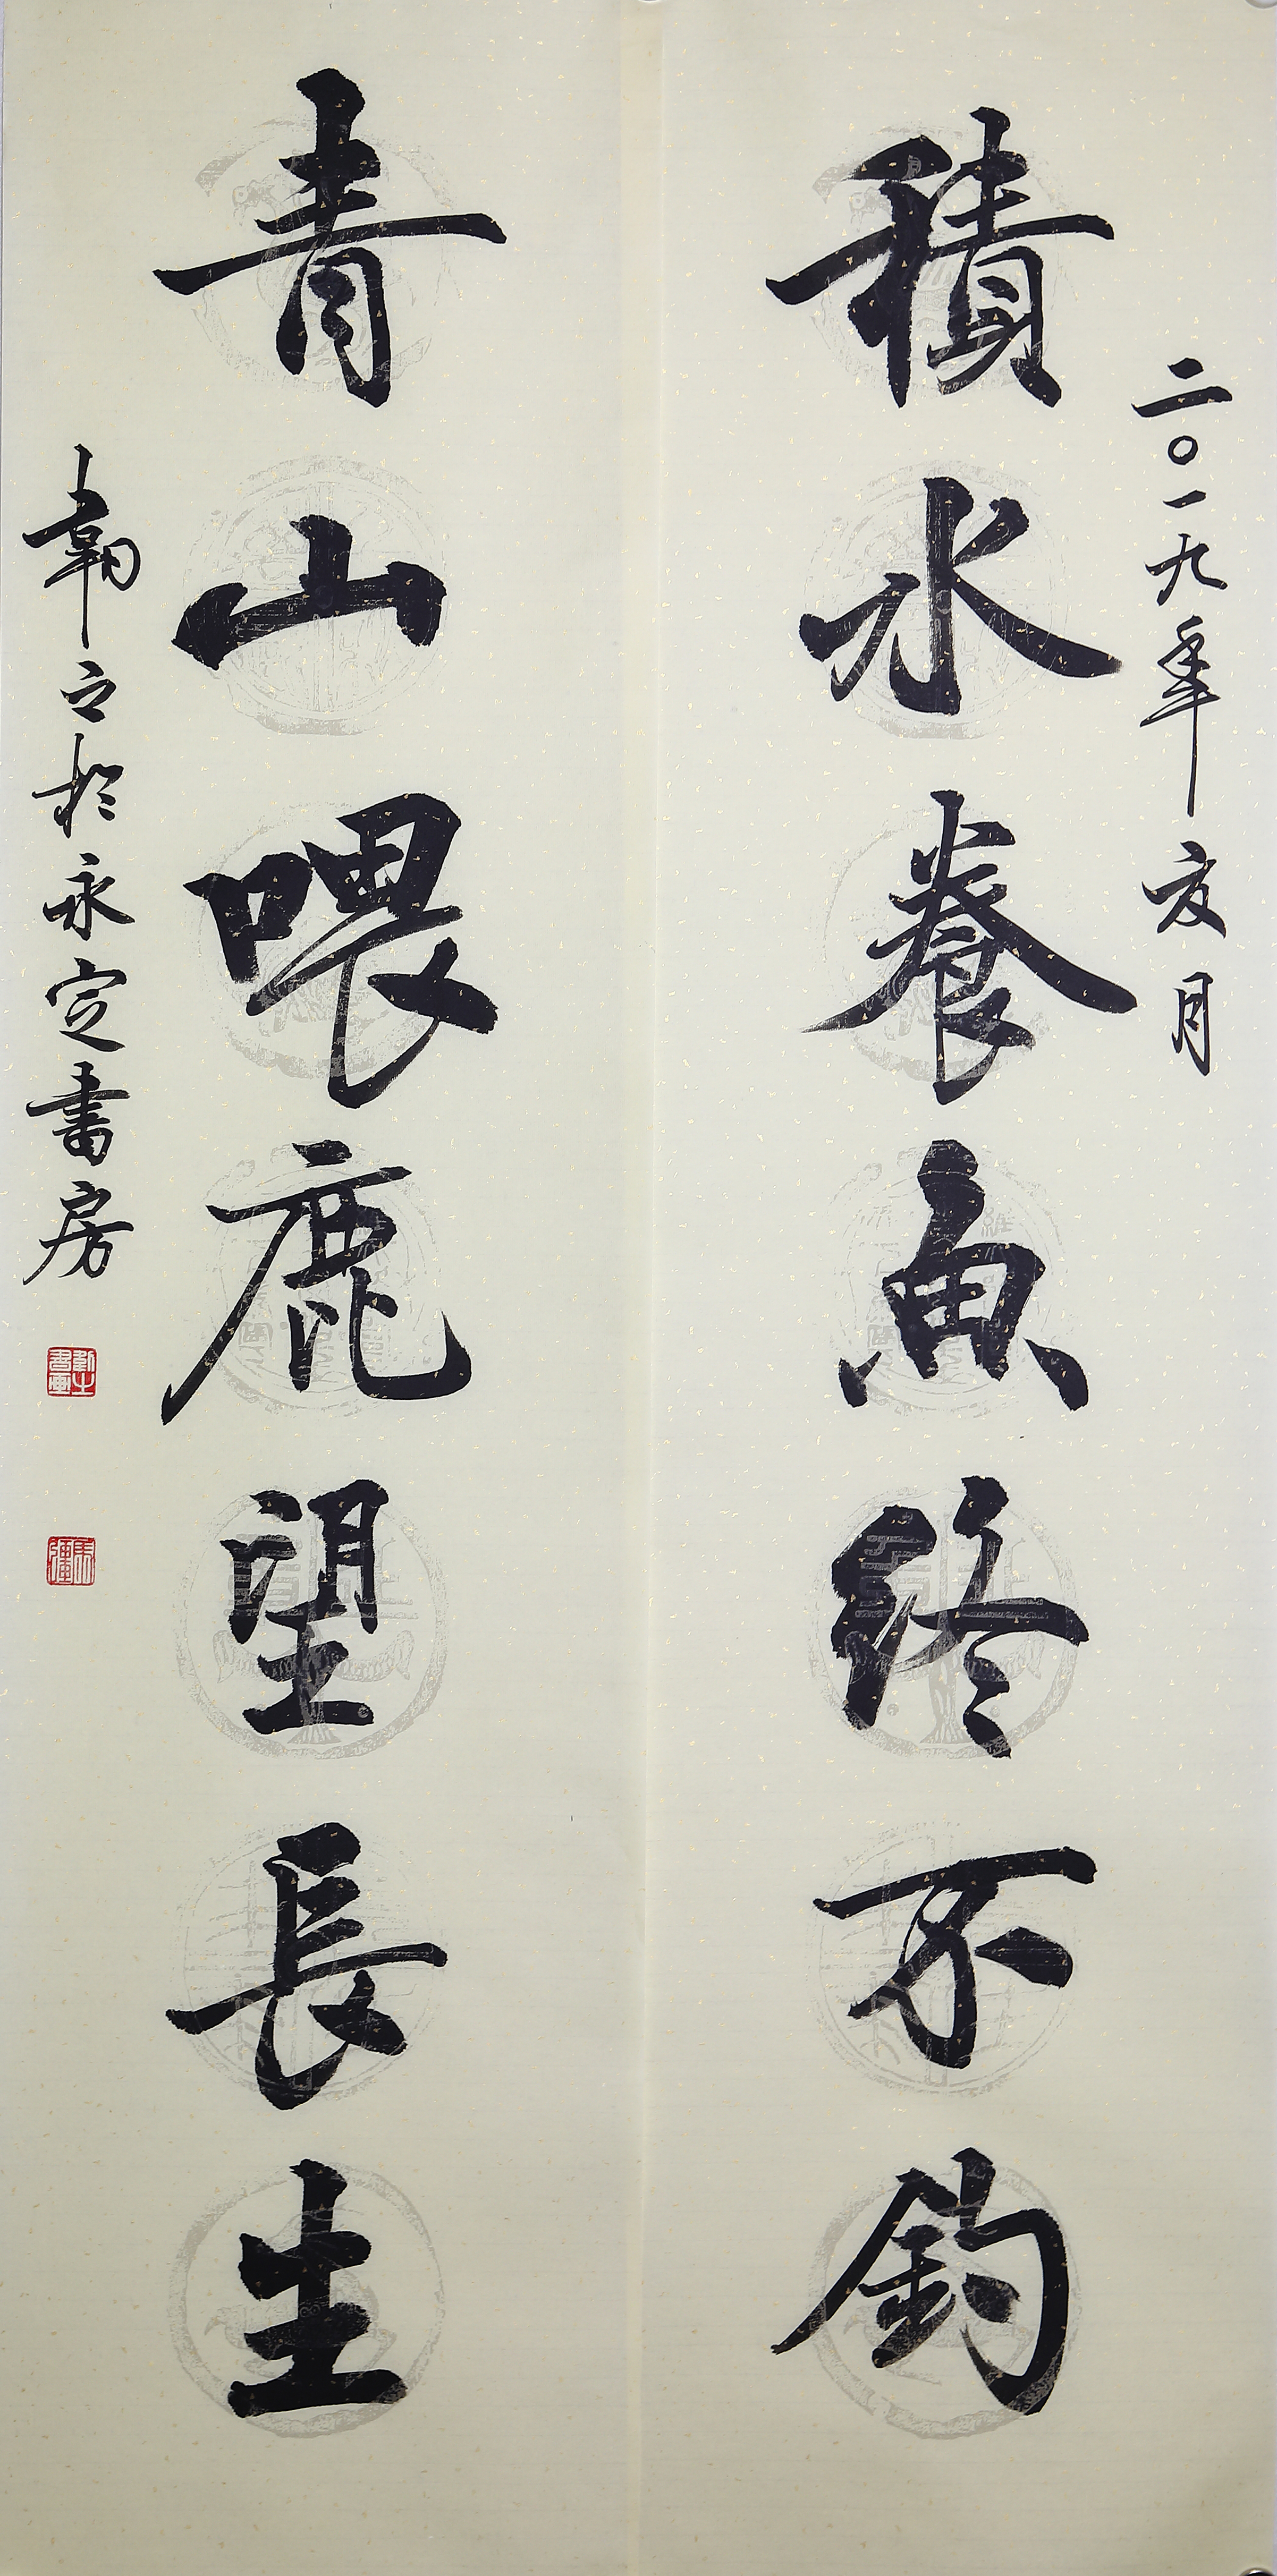 二〇一九年亥月
積水養魚終不鈎
青山喂鹿望長生
之於永定書房